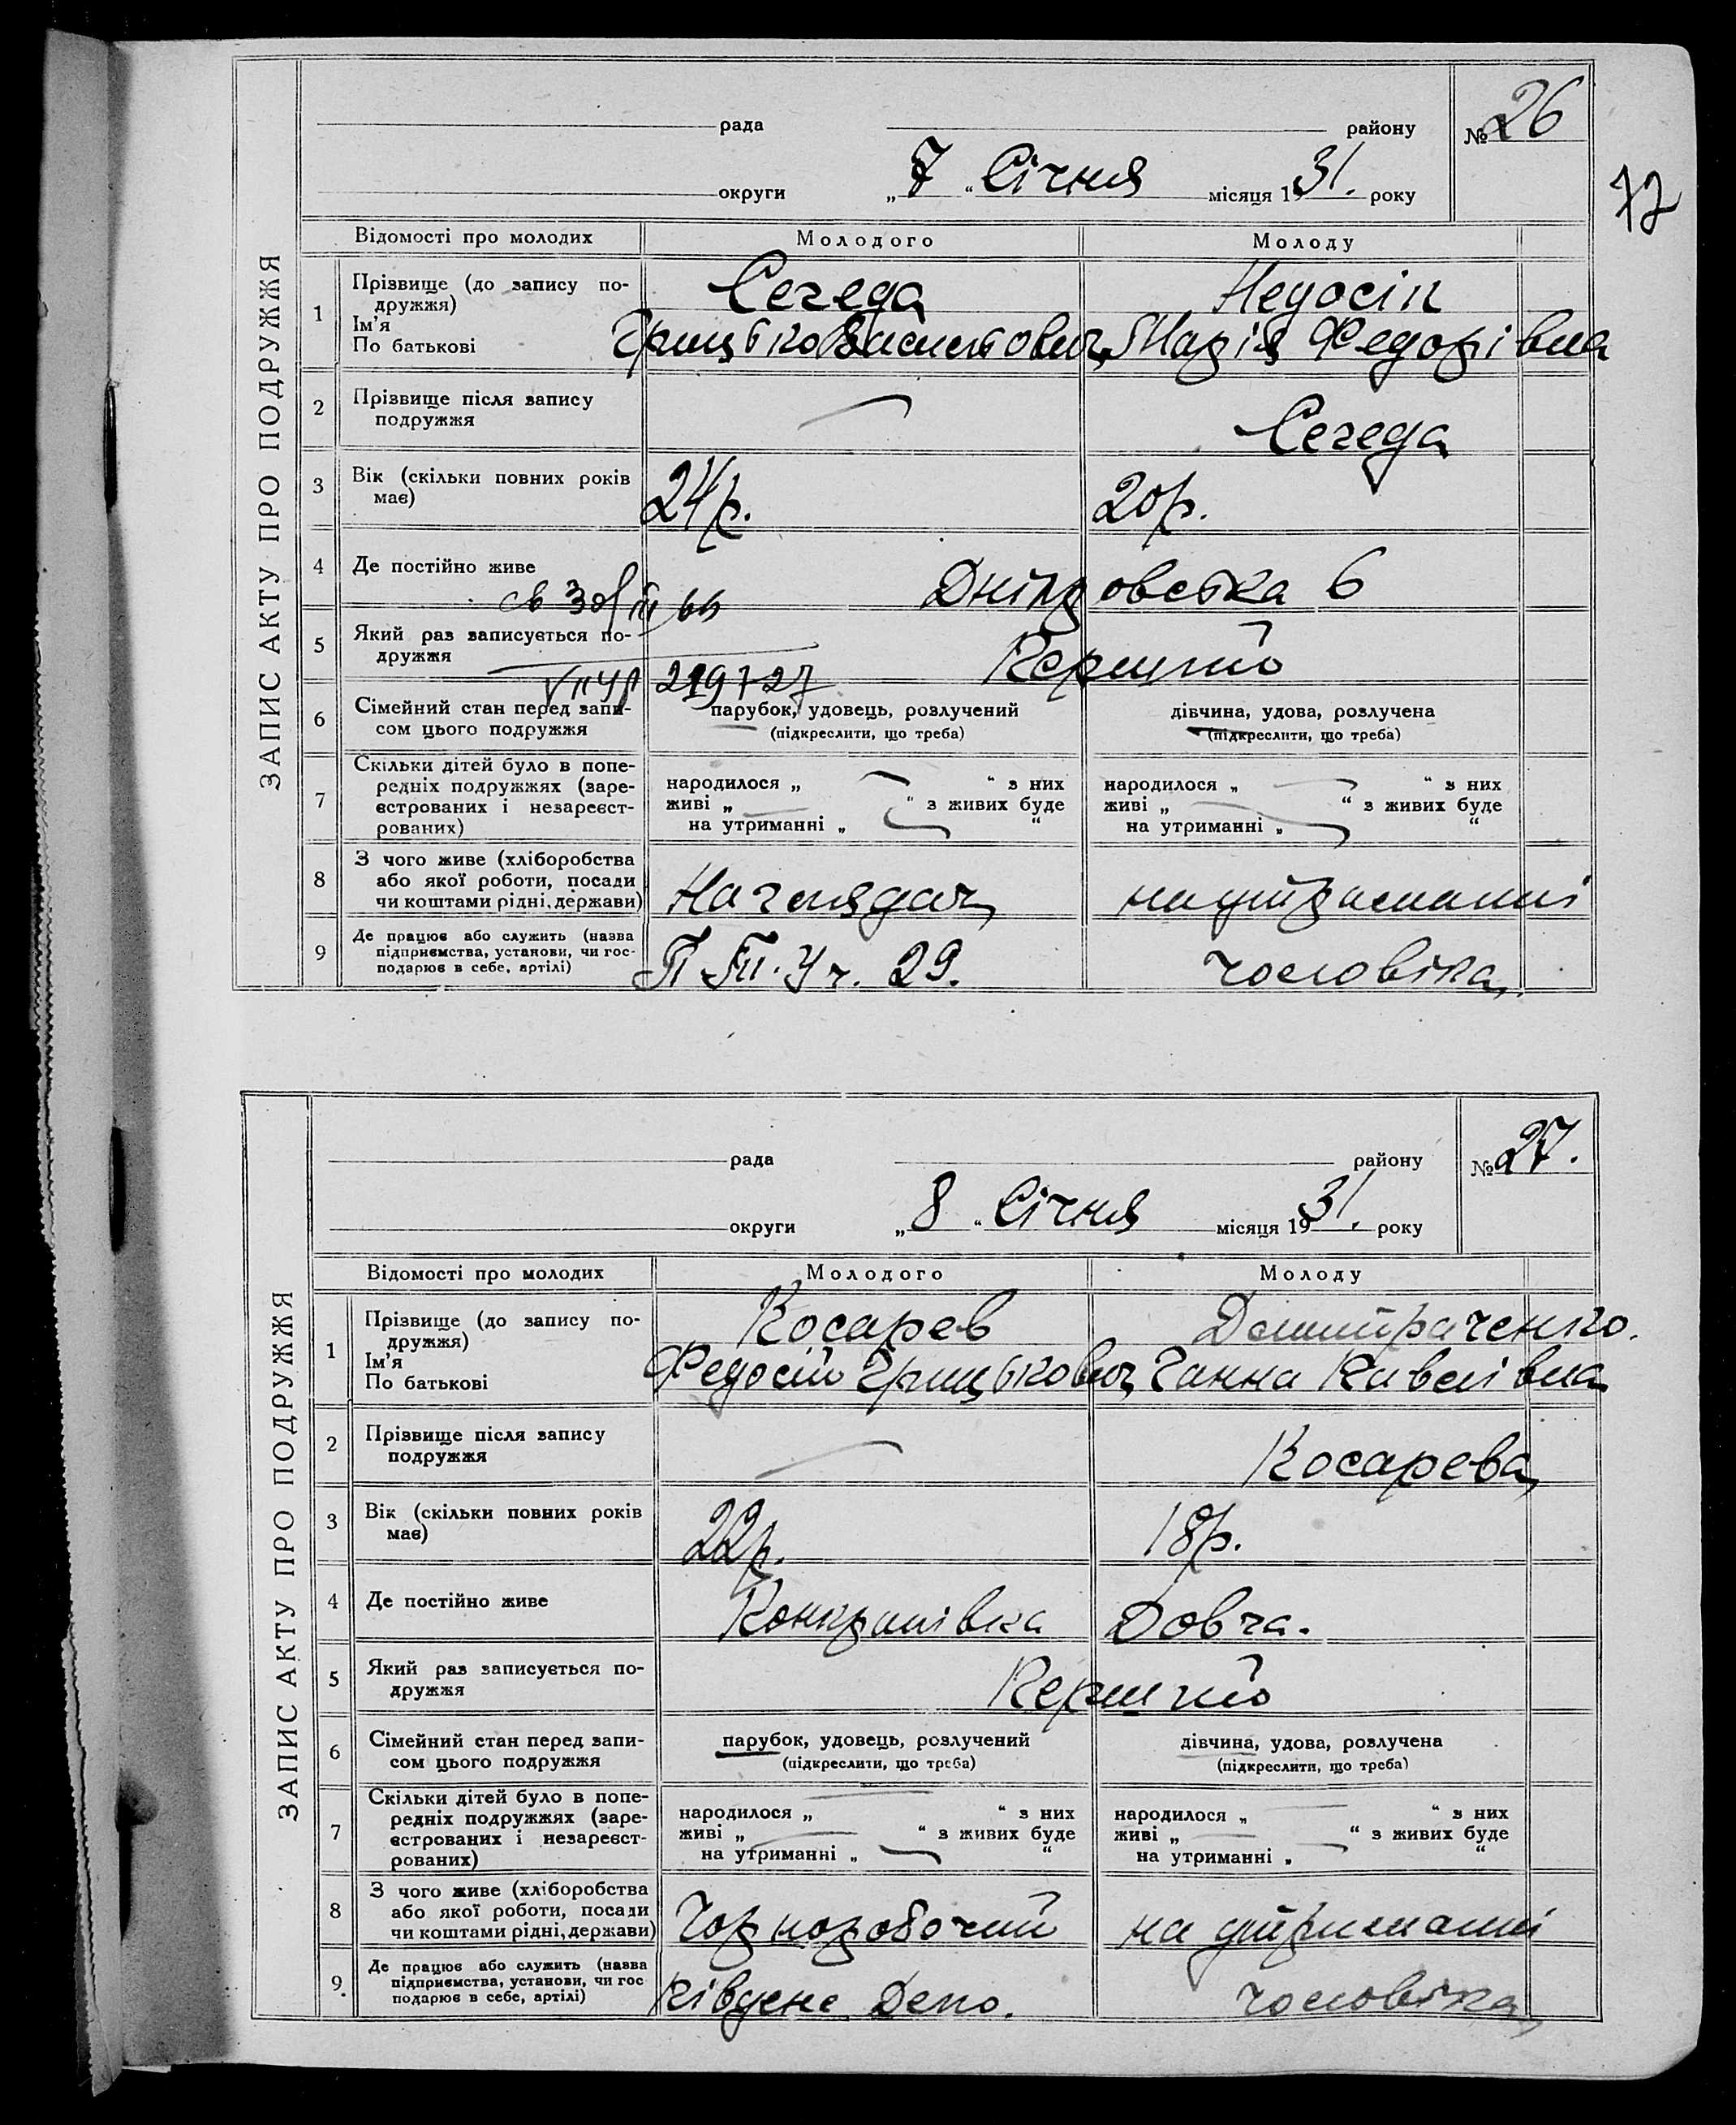 ЗАПИС АКТУ ПРО ПОДРУЖЖЯ
рада району № 26
округи „ 7 “ Січня місяця 1931. року
72
Відомості про молодих Молодого Молоду
1 Прізвище (до запису по-
дружжя)
Ім'я
По батькові
Сегеда Недосіп
Грицько Васильович Марія Федорівна
2 Прізвище після запису
подружжя
Сегеда
3 Вік (скільки повних років
має)
24р. 20р.
4 Де постійно живе
Дніпровська 6
5 Який раз записується по-
дружжя
Перший
6 Сімейний стан перед запи-
сом цього подружжя
парубок, удовець, розлучений
(підкреслити, що треба)
дівчина, удова, розлучена
(підкреслити, що треба)
7 Скільки дітей було в попе-
редніх подружжях (заре-
єстрованих і незареєст-
рованих)
народилося „ “ з них
живі „ “ з живих буде
на утриманні „ “
народилося „ “ з них
живі „ “ з живих буде
на утриманні „ “
8 З чого живе (хліборобства
або якої роботи, посади
чи коштами рідні, держави)
Наглядач на утриманні
9 Де працює або служить (назва
підприємства, установи, чи гос-
подарює в себе, артілі)
29. чоловіка.
ЗАПИС АКТУ ПРО ПОДРУЖЖЯ
рада району № 27.
округи „ 8 “ Січня місяця 1931. року
Відомості про молодих Молодого Молоду
1 Прізвище (до запису по-
дружжя)
Ім'я
По батькові
Косарев Дмитраченко.
Федосій Грицькович Ганна Павлівна
2 Прізвище після запису
подружжя
Косарева
3 Вік (скільки повних років
має)
22р. 18р.
4 Де постійно живе
Довга.
5 Який раз записується по-
дружжя
Перший
6 Сімейний стан перед запи-
сом цього подружжя
парубок, удовець, розлучений
(підкреслити, що треба)
дівчина, удова, розлучена
(підкреслити, що треба)
7 Скільки дітей було в попе-
редніх подружжях (заре-
єстрованих і незареєст-
рованих)
народилося „ “ з них
живі „ “ з живих буде
на утриманні „ “
народилося „ “ з них
живі „ “ з живих буде
на утриманні „ “
8 З чого живе (хліборобства
або якої роботи, посади
чи коштами рідні, держави)
Чорноробочий на утриманні
9. Де працює або служить (назва
підприємства, установи, чи гос
подарює в себе, артілі)
Південе Депо. чоловіка